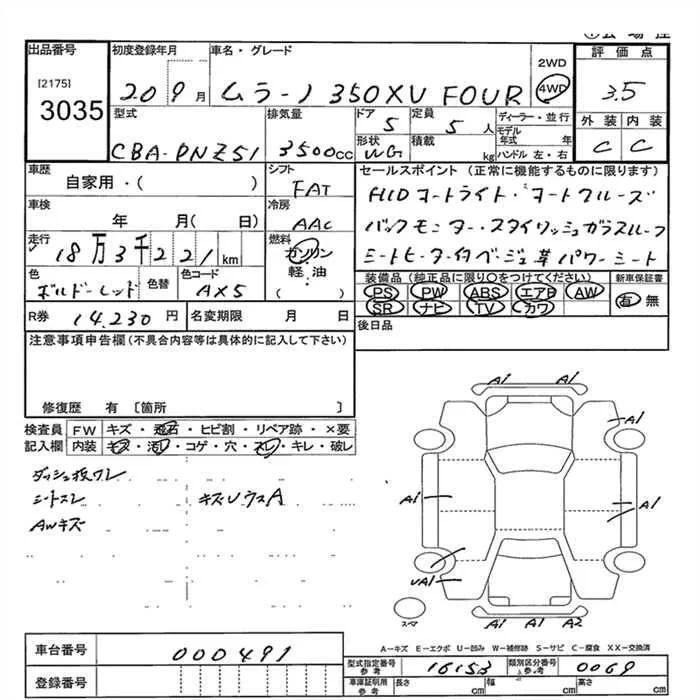 出品番号
[2175]
3035
初度登録年月
20 9月
車名・グレード
ムラーノ 350XV FOUR
2WD
4WD
評価点
3.5
外装 内装
C C
型式
CBA-PNZ51
排気量
3500cc
ドア
5
形状
WG
定員
5人
積載
kg
ディーラー・並行
モデル年式 年
ハンドル 左・右
車歴
自家用・( )
車検
年 月( 日)
走行
18万3千221km
色
ボルドーレッド
色替
色コード
AX5
シフト
FAT
冷房
AAC
燃料
ガソリン
軽・油
( )
セールスポイント (正常に機能するものに限ります)
HIDオートライト・オートクルーズ
バックモニター・スタイリッシュガラスルーフ
シートヒーター付ベージュ革パワーシート
装備品(純正品に限り○をつけてください)
PS PW ABS エアB AW
SR ナビ TV カワ
新車保証書
有 無
R券 14,230円
名変期限 月 日
後日品
注意事項申告欄(不具合内容等は具体的に記入して下さい)
修復歴 有 〔箇所 〕
検査員記入欄
FW キズ・飛石・ヒビ割・リペア跡・×要
内装 キズ・汚れ・コゲ・穴・スレ・キレ・破レ
シートスレ
AWキズ
キズUウスA
A1 A1
A1
A1
A1
A1
UA1
A1 A1 A2
スペア
A-キズ E-エクボ U-凹み W-補修跡 S-サビ C-腐食 XX-交換済
車台番号
000491
登録番号
型式指定番号 参考
16153
類別区分番号 参考
0069
車庫証明用 参考
長さ cm
幅 cm
高さ cm